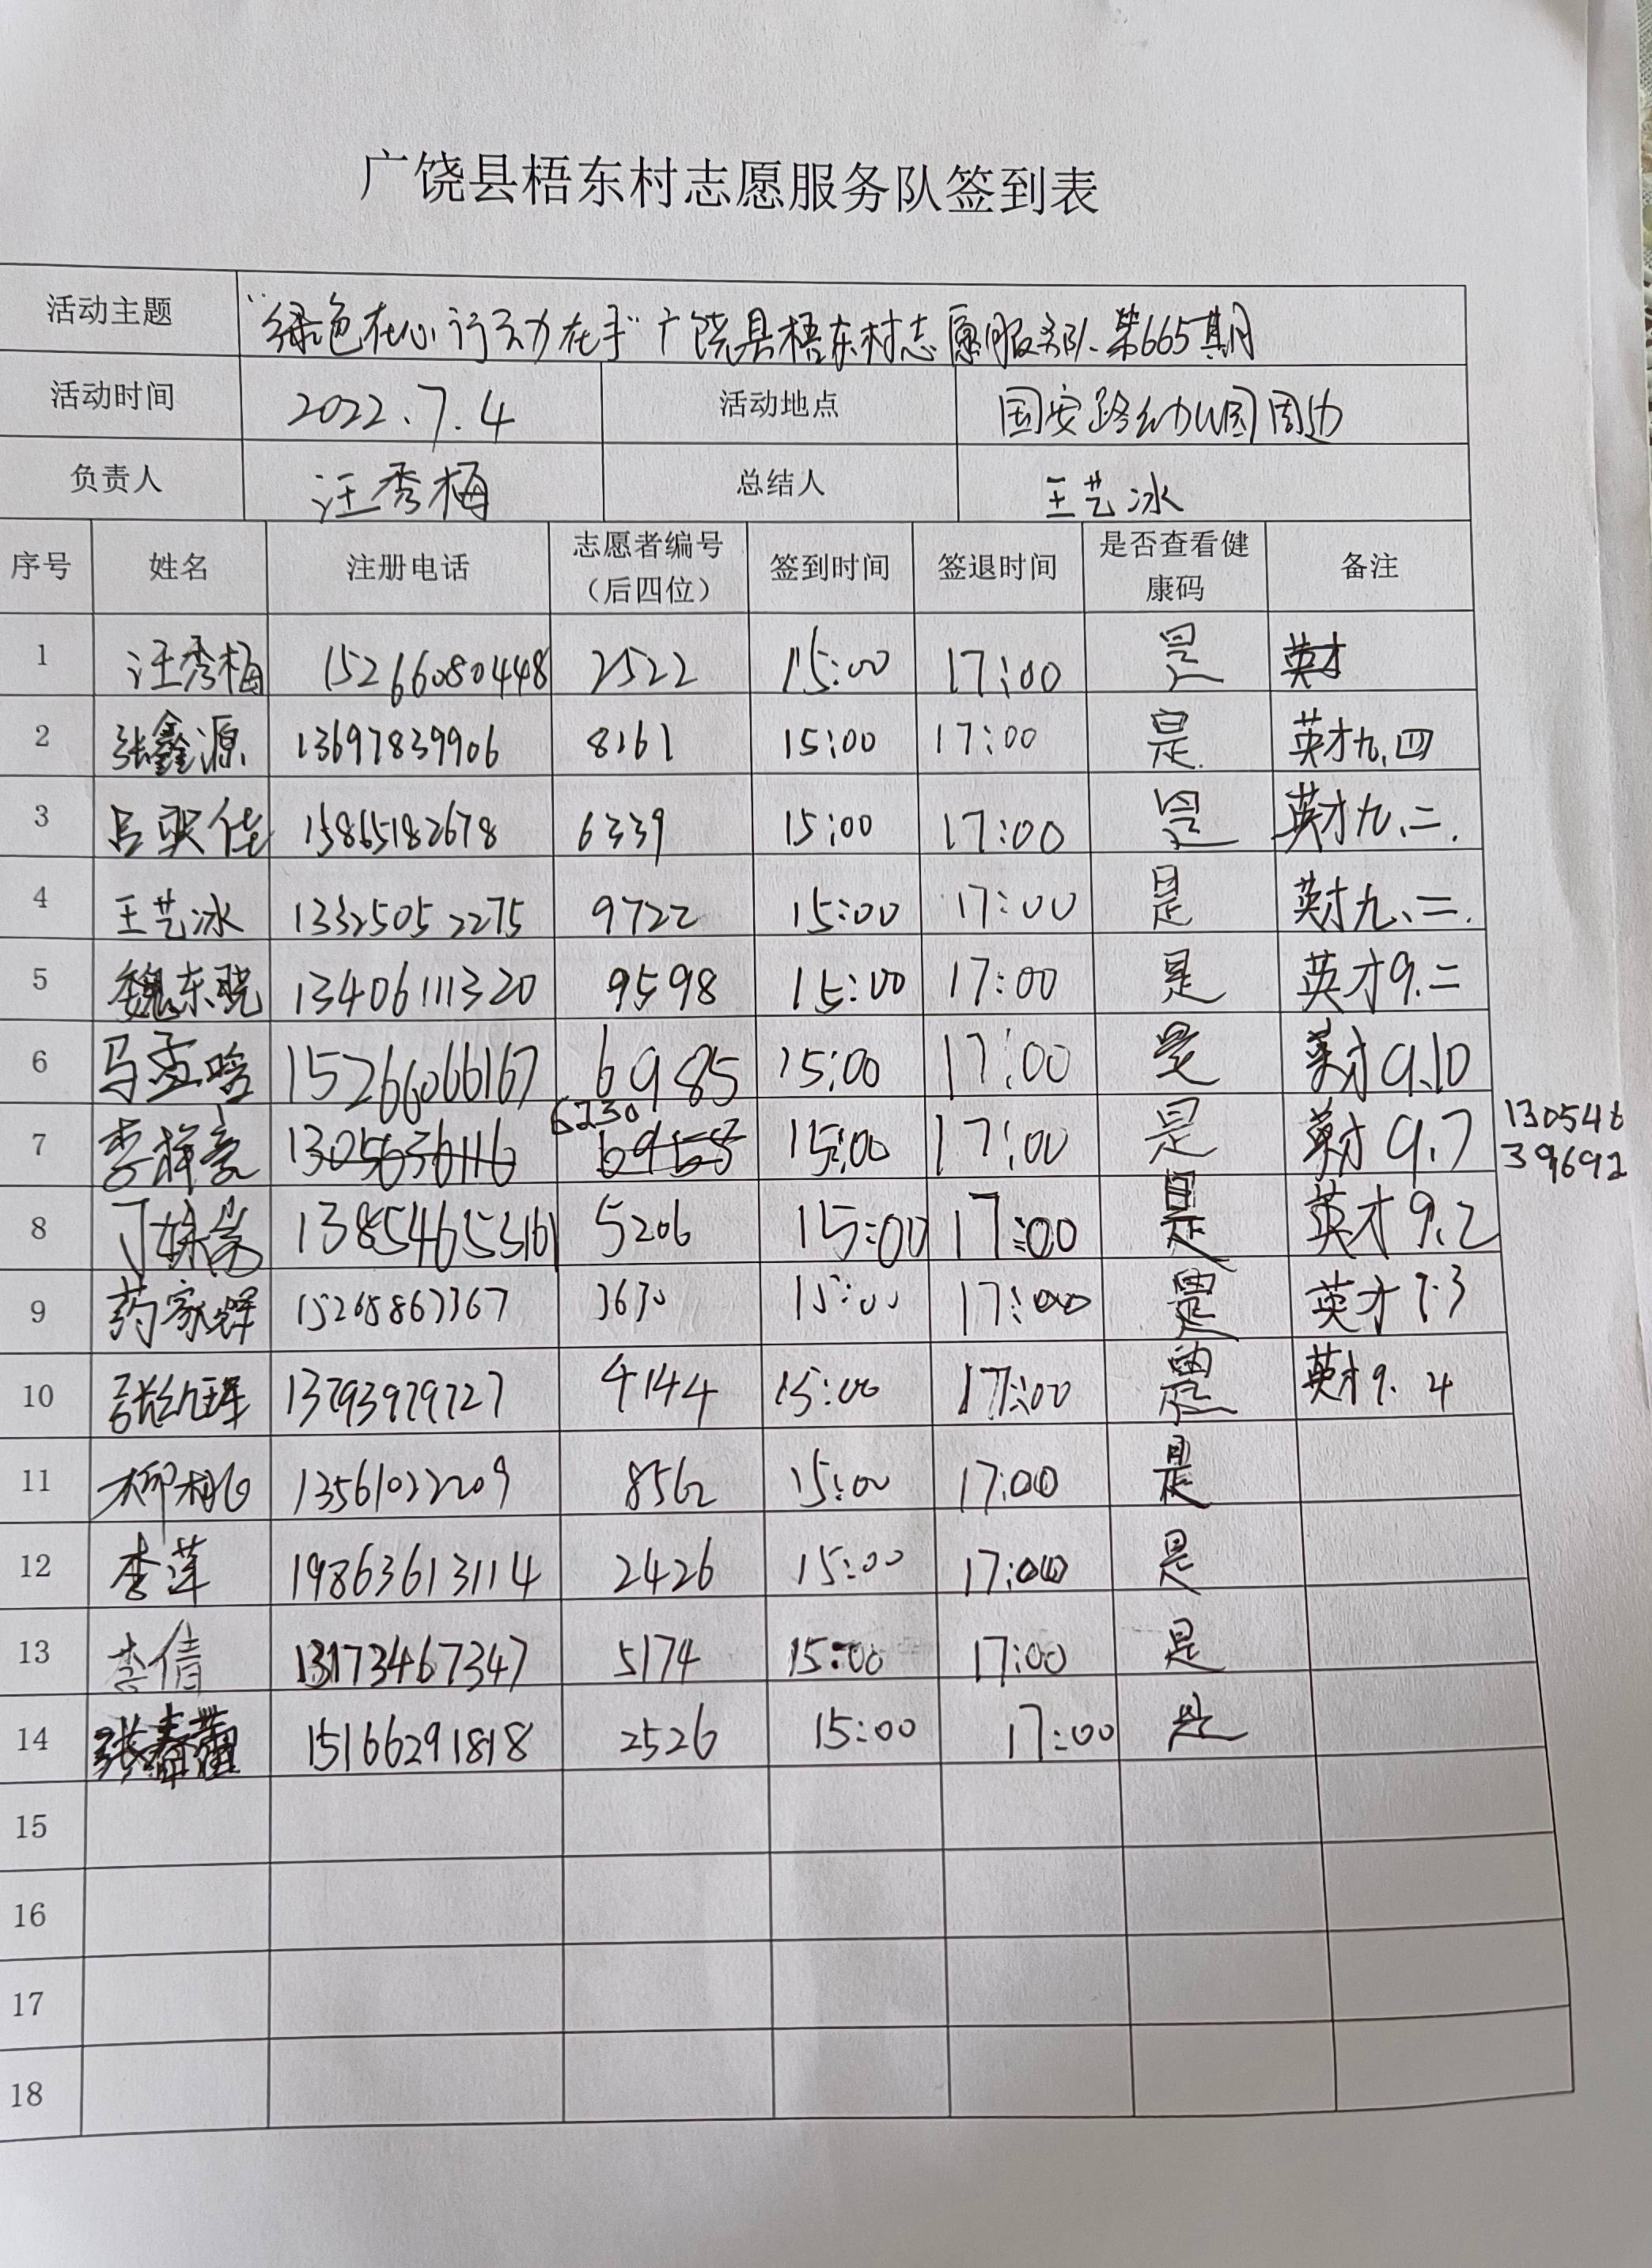 广饶县梧东村志愿服务队签到表
活动主题 "绿色在心 行动在手" 广饶县梧东村志愿服务队第665期
活动时间 2022.7.4 活动地点 国安路幼儿园周边
负责人 汪秀梅 总结人 王艺冰
序号 姓名 注册电话 志愿者编号（后四位） 签到时间 签退时间 是否查看健康码 备注
1 汪秀梅 15266080448 2522 15:00 17:00 是
2 张鑫源 13697839906 8161 15:00 17:00 是 英才九.四
3 15865182678 6339 15:00 17:00 是 英才九.二.
4 王艺冰 13325052275 9722 15:00 17:00 是 英才九.二.
5 魏东晓 13406111320 9598 15:00 17:00 是 英才9.二
6 马孟晗 15266066167 6985 15:00 17:00 是 英才9.10
7 李祥豪 6230 15:00 17:00 是 英才9.7 13054639692
8 13854653161 5206 15:00 17:00 是 英才9.2
9 15265867367 3630 15:00 17:00 是 英才9.3
10 13793979727 4144 15:00 17:00 是 英才9.4
11 13561022209 8562 15:00 17:00 是
12 李莲 19863613114 2426 15:00 17:00 是
13 李倩 13173467347 5174 15:00 17:00 是
14 15166291818 2526 15:00 17:00 是
15
16
17
18